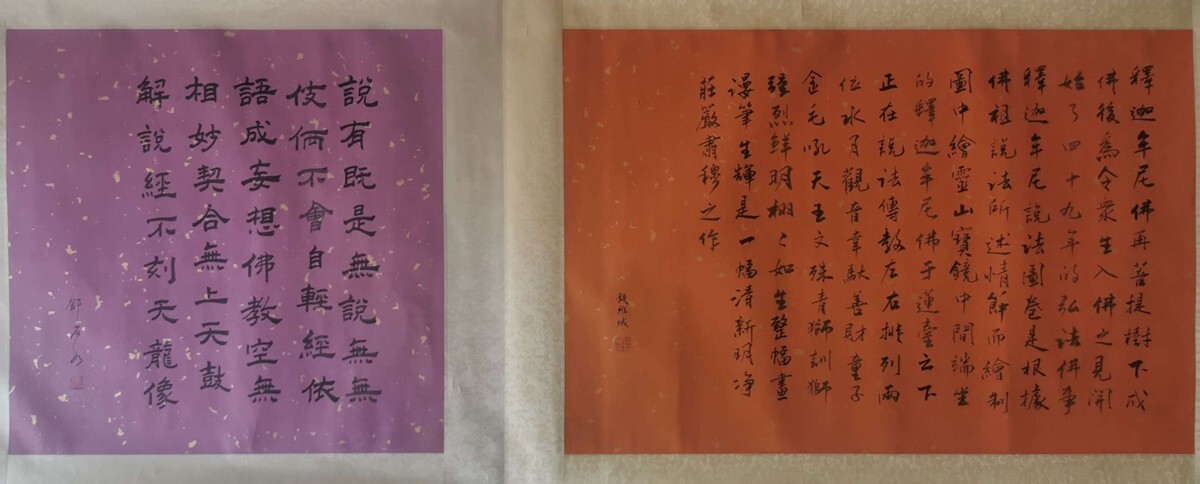 釋迦牟尼佛再菩提樹下成
佛後為令衆生入佛之見開
始了四十九年的弘法佛事
釋迦牟尼說法圖卷是根據
佛祖說法所述情節而繪制
圖中繪靈山寶鏡中間端坐
的釋迦牟尼佛于蓮臺之下
正在說法傳教左右排列兩
位水月觀音韋馱善財童子
金毛吼天王文殊青獅訓獅
强烈鮮明栩々如生整幅畫
漫筆生輝是一幅清新明净
莊嚴肅穆之作
錢維城
說有既是無說無無
伎倆不會自輕經依
語成妄想佛教空無
相妙契合無上天鼓
解說經不刻天龍像
鄒